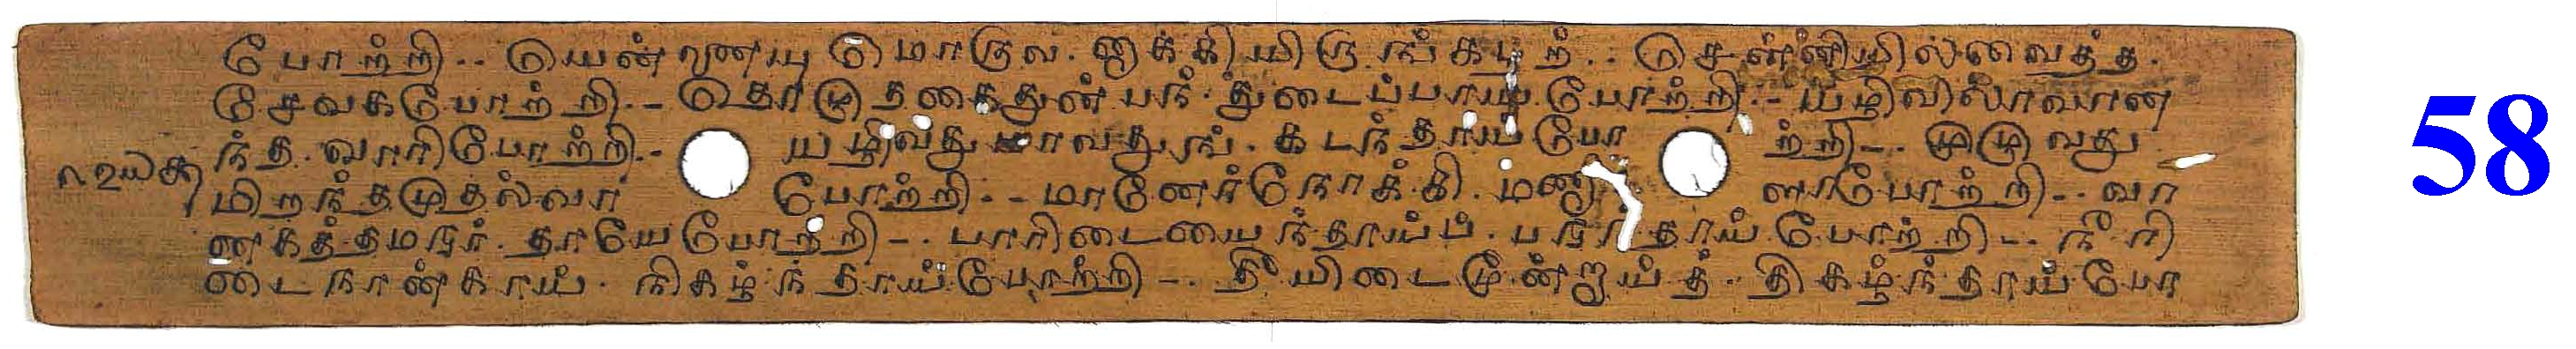 போற்றி.. யென்ணையு மொருவ. னாக்கியிருங்கழற்.. சென்னியில்வைத்த.
சேவகபோற்றி.- தொழுதகைதுன்பந். துடைப்பாய்போற்றி.- யழிவிலாவான
ந்த. வாரிபோற்றி.- யழிவதுமாவதுங். கடந்தாய்போ ற்றி-. முழுவது
மிறந்தமுதல்வா போற்றி.- மானேர்நோக்கி. மணா ளாபோற்றி-. வா
னகத்தமரர். தாயேபோற்றி-. பாரிடையைந்தாய்ப். பரந்தாய்போற்றி-. நீரி
டைநான்காய். நிகழ்ந்தாய்போற்றி-. தீயிடைமூன்றாய்த். திகழ்ந்தாய்போ
58